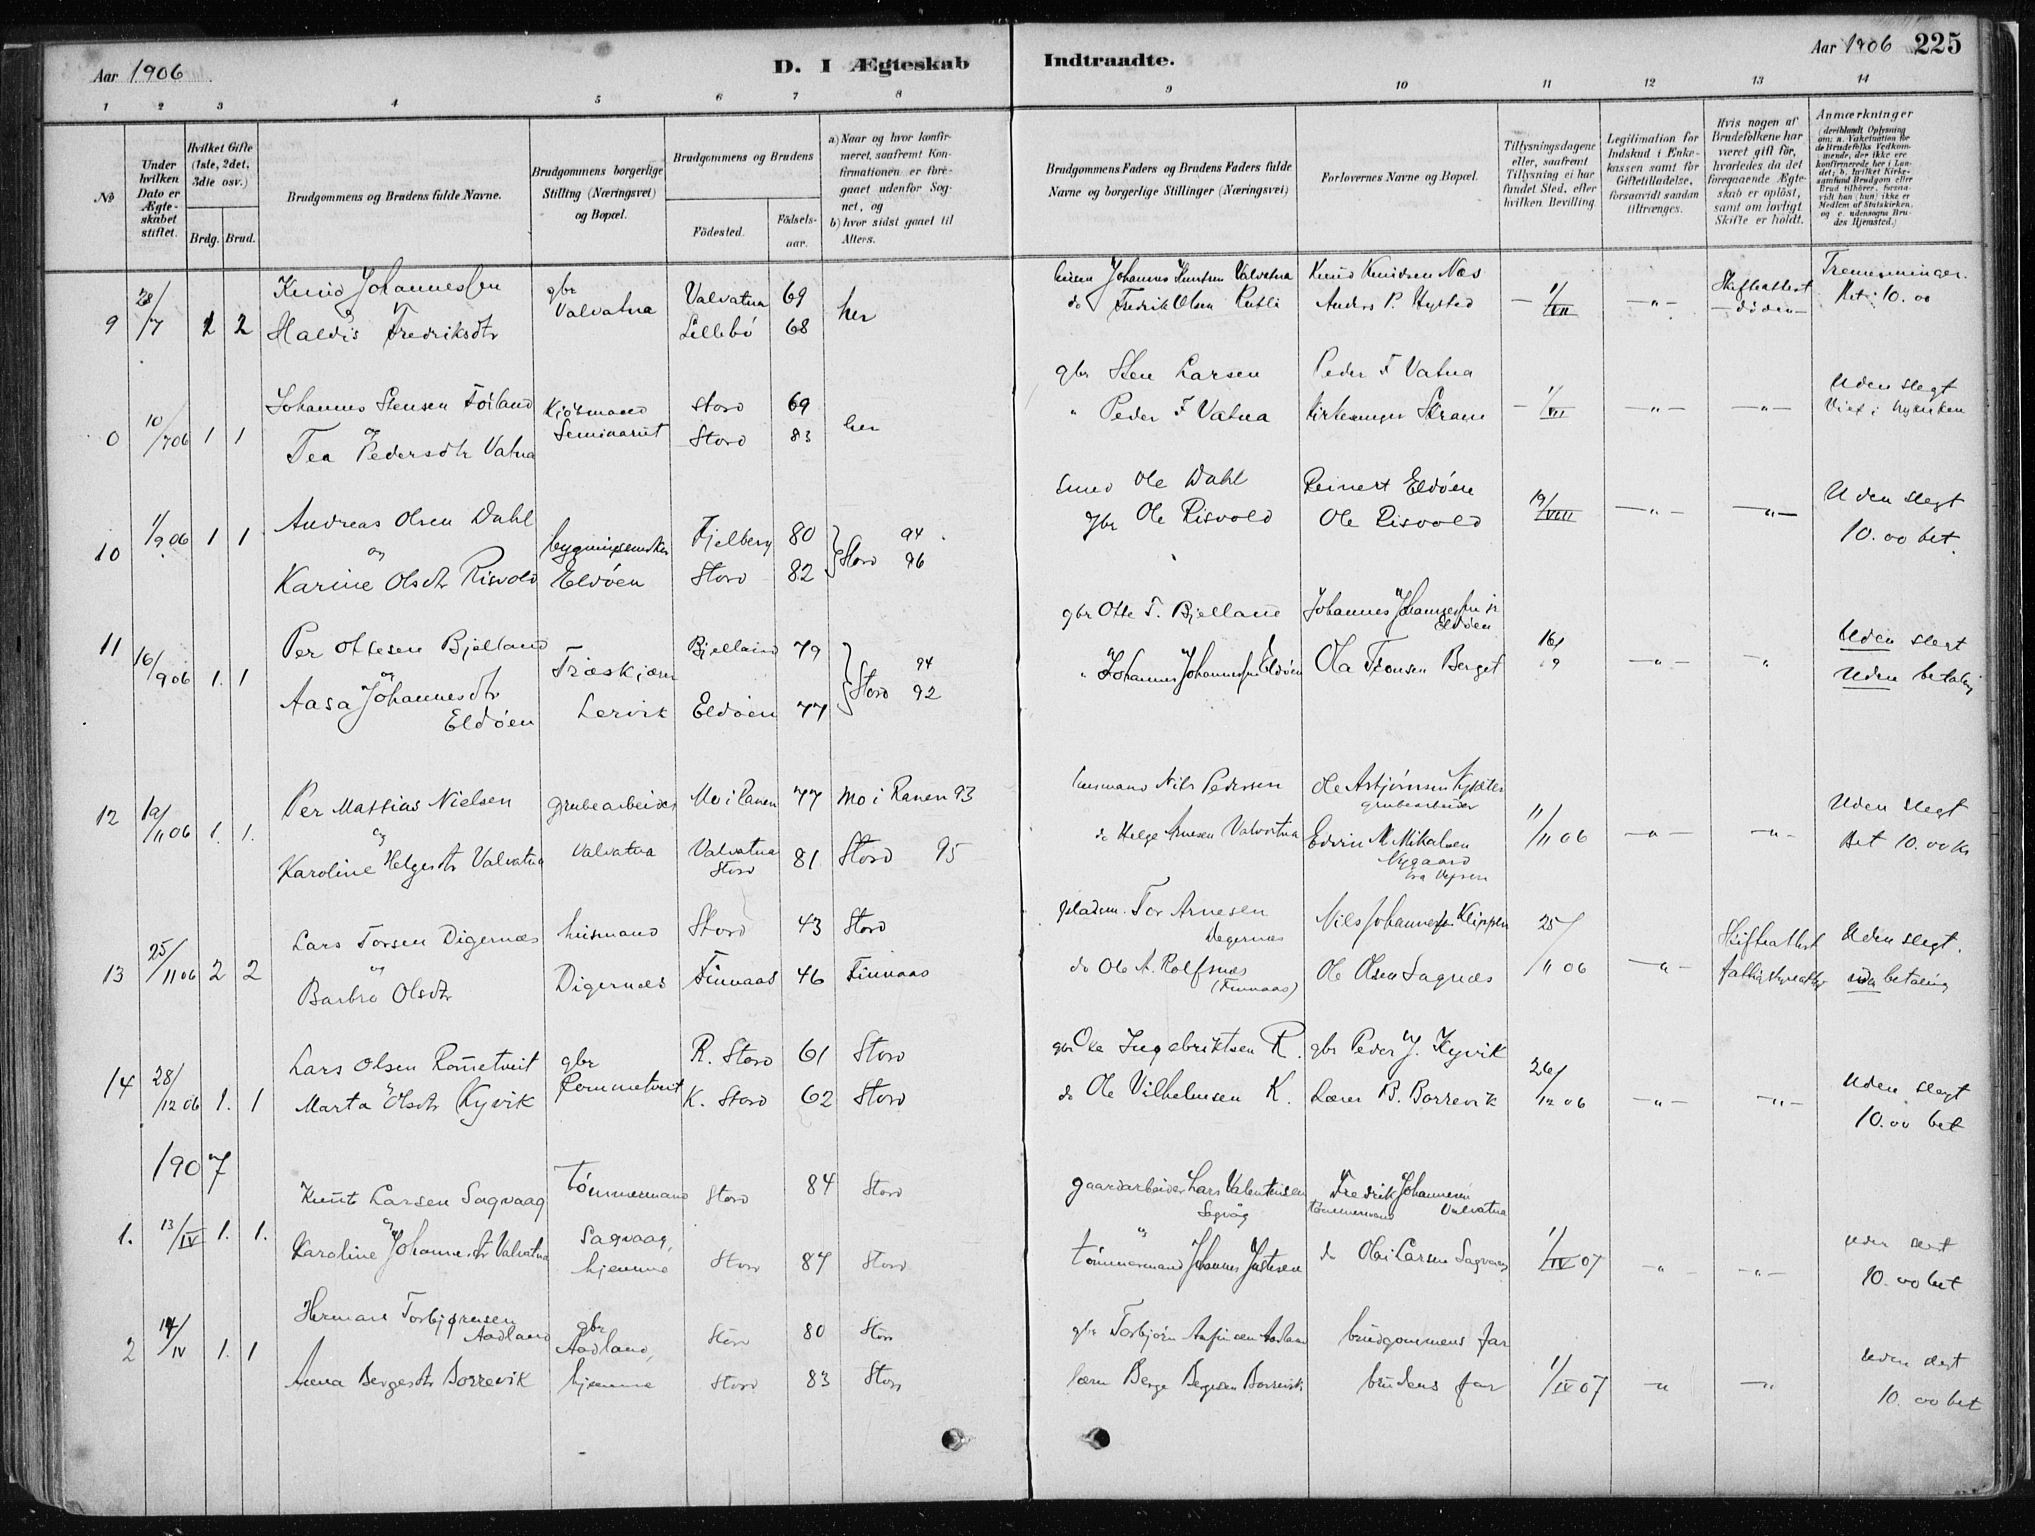 Aar 1906
D. I Ægteskab
Indtraadte.
Aar 1906 225
1 2 3 4 5 6 7 8 9 10 11 12 13 14
No
Under hvilken Dato er Ægteskabet stiftet.
Hvilket Gifte (1ste, 2det, 3die osv.)
Brdg. Brud.
Brudgommens og Brudens fulde Navne.
Brudgommens borgerlige Stilling (Næringsvei) og Bopæl.
Brudgommens og Brudens
Födested.
Födselsaar.
a) Naar og hvor konfirmeret, saafremt Konfirmationen er foregaaet udenfor Sognet, og
b) hvor sidst gaaet til Alters.
Brudgommens Faders og Brudens Faders fulde Navne og borgerlige Stillinger (Næringsvei)
Forlovernes Navne og Bopæl.
Tillysningsdagene eller, saafremt Tillysning ei har fundet Sted, efter hvilken Bevilling.
Legitimation for Indskud i Enkekassen samt for Giftetilladelse, forsaavidt saadan tiltrænges.
Hvis nogen af Brudefolkene har været gift för, hvorledes da det foregaaende Ægteskab er oplöst, samt om lovligt Skifte er holdt.
Anmærkninger
(deriblandt Oplysning om: a. Vakcination for de Brudefolks Vedkommende, der ikke ere konfirmerede her i Landet; b. hvilket Kirkesamfund Brudgom eller Brud tilhörer, forsaavidt han (hun) ikke er Medlem af Statskirken, og c. udensogns Brudes Hjemsted.)
Knud Johannessen gbr Valvatna 69 Johannes Knutsen Valvatna Knud Knudsen Næs Skifteattest Tremenninger.
9 28/7 2 Haldis Fredriksdtr Valvatna Lillebö 68 her do Fredrik Olsen Rutli Anders P. Hysted 1/VII -"- döden Bet: 10.00
Johannes Stensen Förland Stord 69 gbr Sten Larsen Peder F Vatna Uden slegt
0 10/706 1 1 og Tea Pedersdtr Vatna Seminariet Stord 83 her " Peder F Vatna Kirkesanger 1/VII -"- -"- Viet i
Andreas Olsen Dahl Fjelberg 80 94 Smed Ole Dahl Reinert Eldöen Uden slegt
10 1/906 1 1 og Karine Olsdtr Risvold Eldöen Stord 82 Stord 96 gbr Ole Risvold Ole Risvold 19/VIII -"- -"- 10.00 bet.
11 Per Ottesen Bjelland Træskjærer Bjelland 79 94 gbr Otte T. Bjelland Johannes Johannessen jr Eldöen Uden slegt
16/906 1. 1 og Aasa Johannesdtr Eldöen Lervik Eldöen 77 Stord 92 " Johannes Johannessen Eldöen Ola Tronsen Berget 16/9 -"- " Uden betaling
12 Per Mattias Nielsen grubearbeider Mo i Ranen 77 Mo i Ranen 93 husmand Nils Pedersen Ole Asbjörnsen grubearbeider Uden slegt
19/11 06 1. 1. og Karoline Helgesdtr Valvatna Valvatna Valvatna Stord 81 Stord 95 do Helge Arnesen Valvatna Edvin M Mikalsen Nygaard 11/11 06 -"- -"- Bet 10.00 kr
Lars Torsen Digernæs husmand Stord 43 Stord pladsm. Tor Arnesen Degernæs Nils Johannessen Klippen Skifteattest Uden slegt.
13 25/11 06 2 2 og Barbro Olsdtr Digernæs Finnaas 46 Finnaas do Ole A. Rolfsnæs (Finnaas) Ole Olsen Sagnæs 25/11 06 -"- uden betaling
Lars Olsen Rometveit gbr R. Stord 61 Stord gbr Ole Ingebriktsen R. gbr Peder J. Kyvik Uden slegt
14 28/12 06 1. 1 og Marta Olsdtr Kyvik Rommetveit K. Stord 62 Stord do Ole Vilhelmsen K. Lærer B. Borrevik 26/12 06 -"- -"- 10.00 bet
1907
Knut Larsen Sagvaag Tömmermand Stord 84 Stord gaardarbeider Lars Valentinsen Sagvåg Fredrik Johannesen tömmermand Valvatna uden slegt
1. 13/IV 1. 1. og Karoline Johannesdtr Valvatna Sagvaag, hjemme Stord 87 Stord tömmermand Johannes Justesen do Olai Larsen Sagvaag 1/IV 07 " -"- 10.00 bet
Herman Torbjørnsen Aadland gbr Stord 80 Stord gbr Torbjörn Anfinsen Aadland brudgommens far uden slegt
2 14/IV 1. 1 Anna Bergesdtr Borrevik Aadland, hjemme Stord 83 Stord lærer Berge Bergesen Borrevik brudens far 1/IV 07 " -"- 10.00 bet